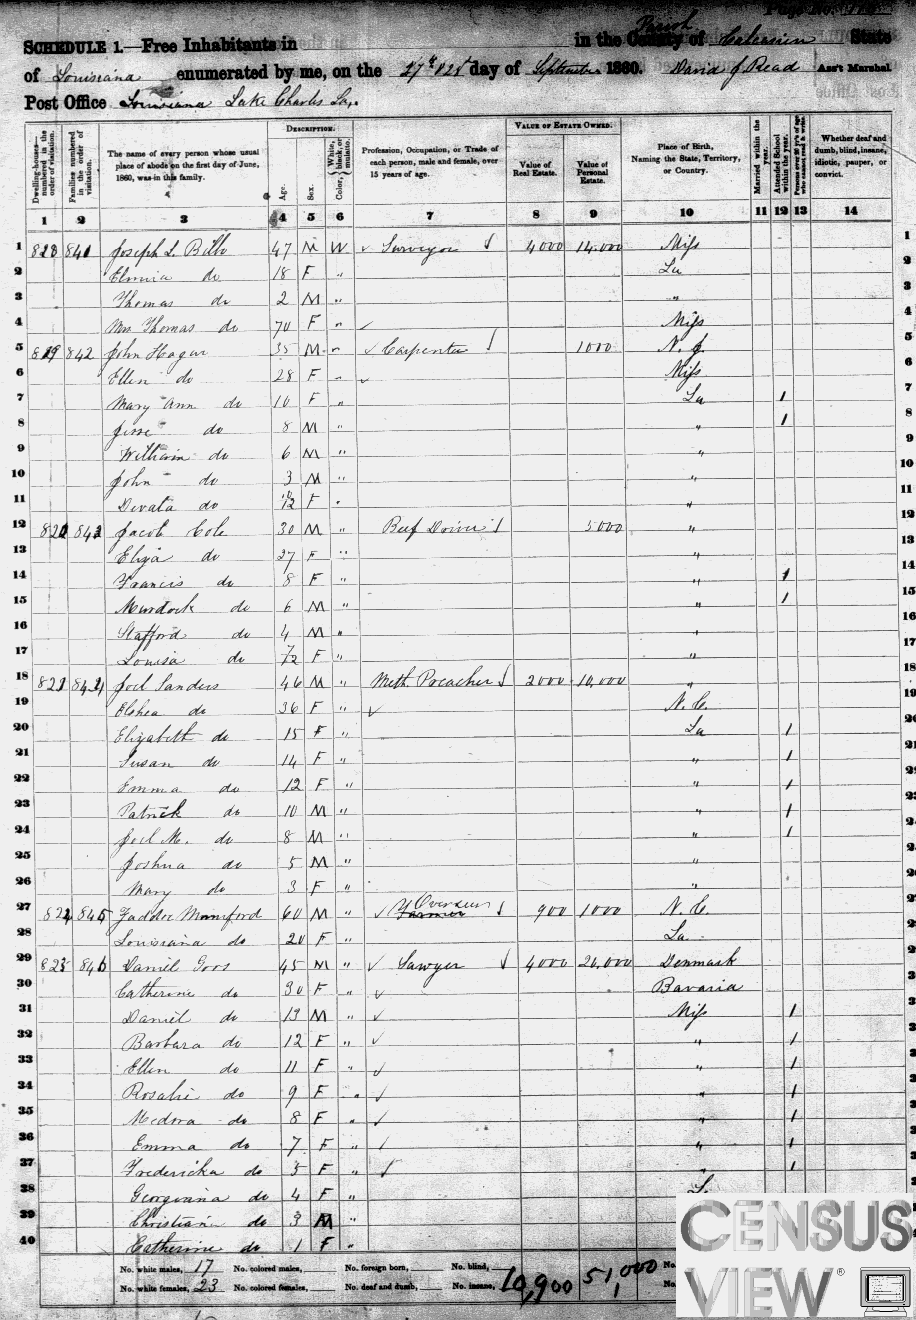 SCHEDULE 1.—Free Inhabitants in in the Parish of Calcasieu State
of Louisiana enumerated by me, on the 27th & 28 day of September 1860. David J Read Ass't Marshal
Post Office Louisiana Lake Charles La.
DESCRIPTION. VALUE OF ESTATE OWNED.
Dwelling-houses—numbered in the order of visitation. Families numbered in the order of visitation. The name of every person whose usual place of abode on the first day of June, 1860, was in this family. Age. Sex. Color, White, black, or mulatto. Profession, Occupation, or Trade of each person, male and female, over 15 years of age. Value of Real Estate. Value of Personal Estate. Place of Birth, Naming the State, Territory, or Country. Married within the year. Attended School within the year. Persons over 20 y'rs of age who cannot read & write. Whether deaf and dumb, blind, insane, idiotic, pauper, or convict.
1 2 3 4 5 6 7 8 9 10 11 12 13 14
1 841 Joseph L. Bilbo 47 M W Surveyor 4000 14,000 Miss 1
2 Elmira do 18 F " La 2
3 Thomas do 2 M " " 3
4 Mrs Thomas do 70 F " Miss 4
5 819 842 John Hagar 35 M " Carpenter 1000 N. J. 5
6 Ellen do 28 F " Miss 6
7 Mary Ann do 10 F " La 1 7
8 Jesse do 8 M " " 1 8
9 William do 6 M " " 9
10 John do 3 M " " 10
11 do F " " 11
12 Jacob Cole 30 M " Beef Driver 5000 " 12
13 Eliza do 27 F " " 13
14 Francis do 8 F " " 1 14
15 Murdock do 6 M " " 1 15
16 Stafford do 4 M " " 16
17 Louisa do 7/12 F " " 17
18 Joel Sanders 46 M " Meth. Preacher 2000 10,000 "
19 Elshea do 36 F " N. C. 19
20 Elizabeth do 15 F " La 1
21 Susan do 14 F " " 1
22 Emma do 12 F " " 1
23 Patrick do 10 M " " 1
24 Joel M. do 8 M " " 1
25 Joshua do 5 M " "
26 Mary do 3 F " "
27 845 Mumford 60 M " Farmer Overseer 900 1000 N. C.
28 Louisiana do 20 F " La.
29 823 846 Daniel Goos 45 M " Sawyer 4000 20,000 Denmark
30 Catherine do 30 F " Bavaria
31 Daniel do 13 M " Miss 1
32 Barbara do 12 F " " 1
33 Ellen do 11 F " " 1
34 Rosalie do 9 F " " 1
35 Medora do 8 F " " 1
36 Emma do 7 F " " 1
37 Fredericka do 5 F " " 1
38 Georgiana do 4 F " La
39 Christian do 3 M "
40 Catherine do 1 F "
No. white males, 17 No. colored males, No. foreign born, No. blind, 10,900 51,000 No.
No. white females, 23 No. colored females, No. deaf and dumb, No. insane, 1 No.
CENSUS
VIEW®